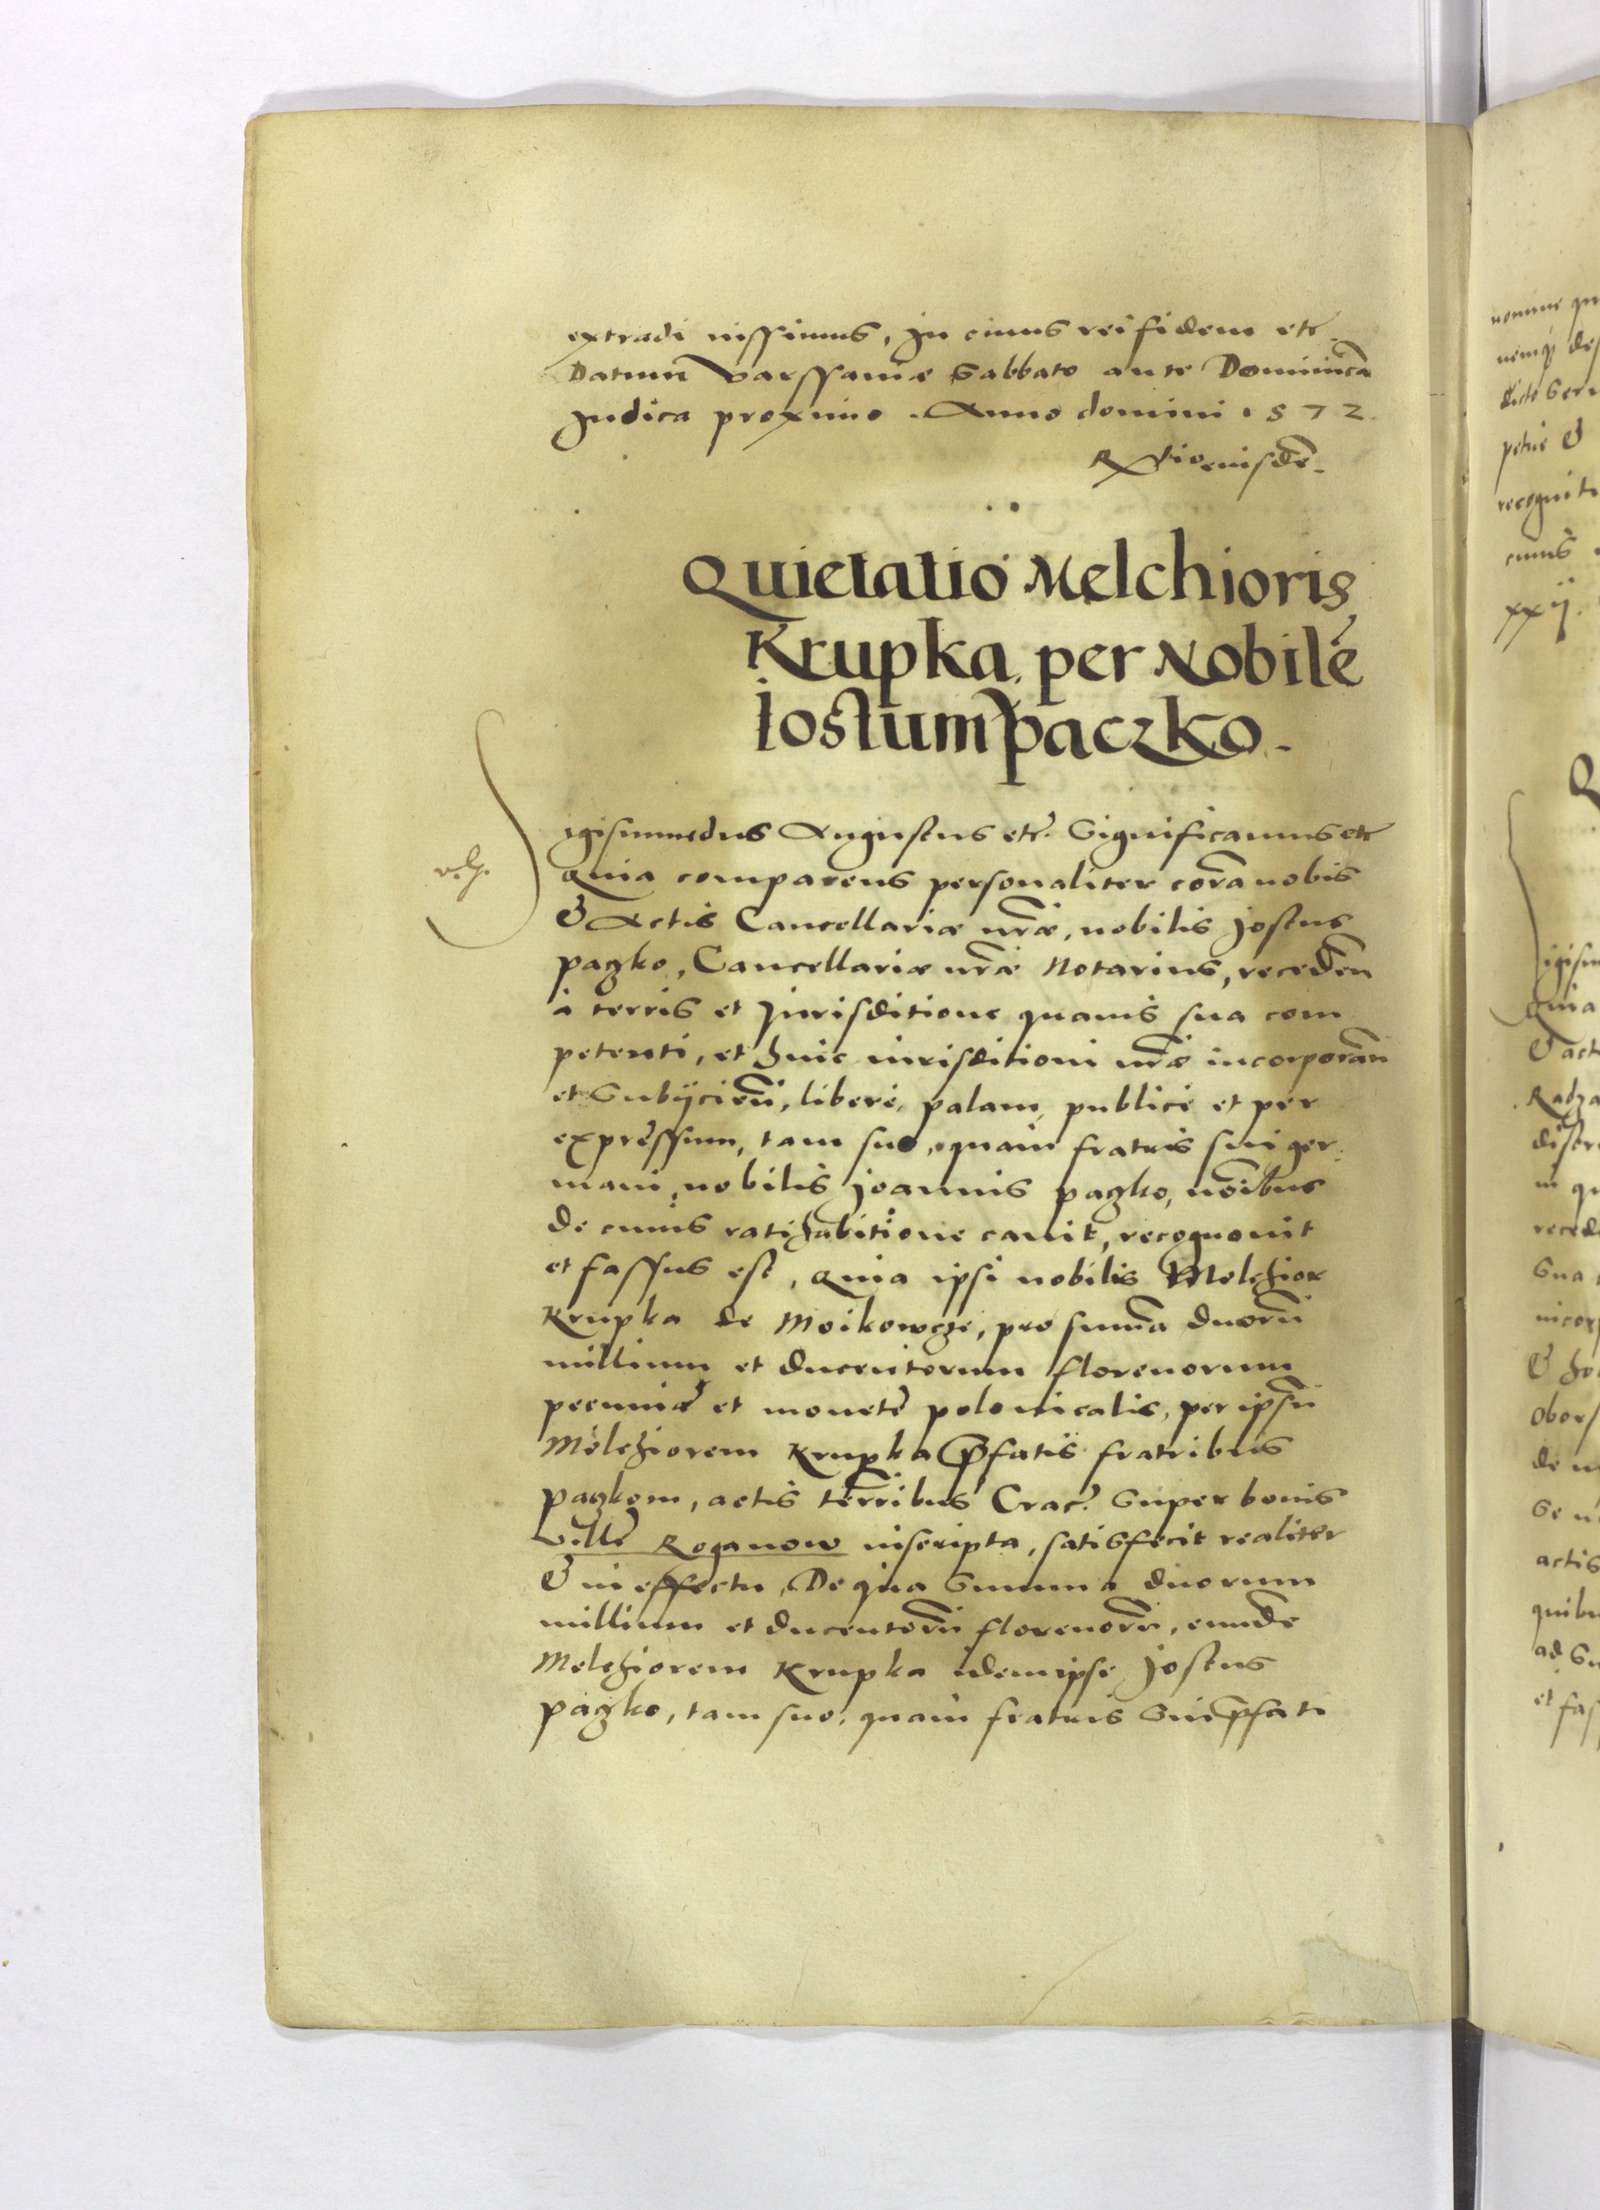 extradi iussimus, In cuius rei fidem etc.
Datum Varssaviæ Sabbato ante Dominicā
Judica proximo. Anno domini 1572.
Rtio eiusdē.
Quietatio Melchioris
Krupka, per Nobilē
Iostum paczko.
Sigismundus Augustus etc. Significamus etc
Quia comparens personaliter corā nobis
& Actis Cancellariæ nrāe, nobilis Jostus
paczko, Cancellariæ nrāe Notarius, recedēn
à terris et Jurisditione quavis sua com
petenti, et huic iurisditioni nrāe incorporān
et Subijciēn, libere, palam, publice et per
expressum, tam suo, quam fratris sui ger
mani, nobilis Joannis paczko, noībus
de cuius ratihabitione cavit, recognovit
et fassus est, Quia ipsi nobilis Melchior
Krupka de Moikowcze, pro summa duorū
millium et ducentorum florenorum
pecuniæ et monetę polonicalis, per ipsū
Melchiorem Krupka p̄fatis fratribus
paczkom, actis terrībus Crac. Super bonis
Villę Roganow inscripta, satisfecit realiter
& in effectu, De qua Summa duorum
millium et ducentorū florenorū, eundē
Melchiorem Krupka idem ipse Jostus
paczko, tam suo, quam fratris Sui p̄fati
nomine
dicto
petue &
recognit
cuius
xxij.
Q
igism
Quia
& act
Radza
recede
Sua
incorp
actis
quibu
et fas